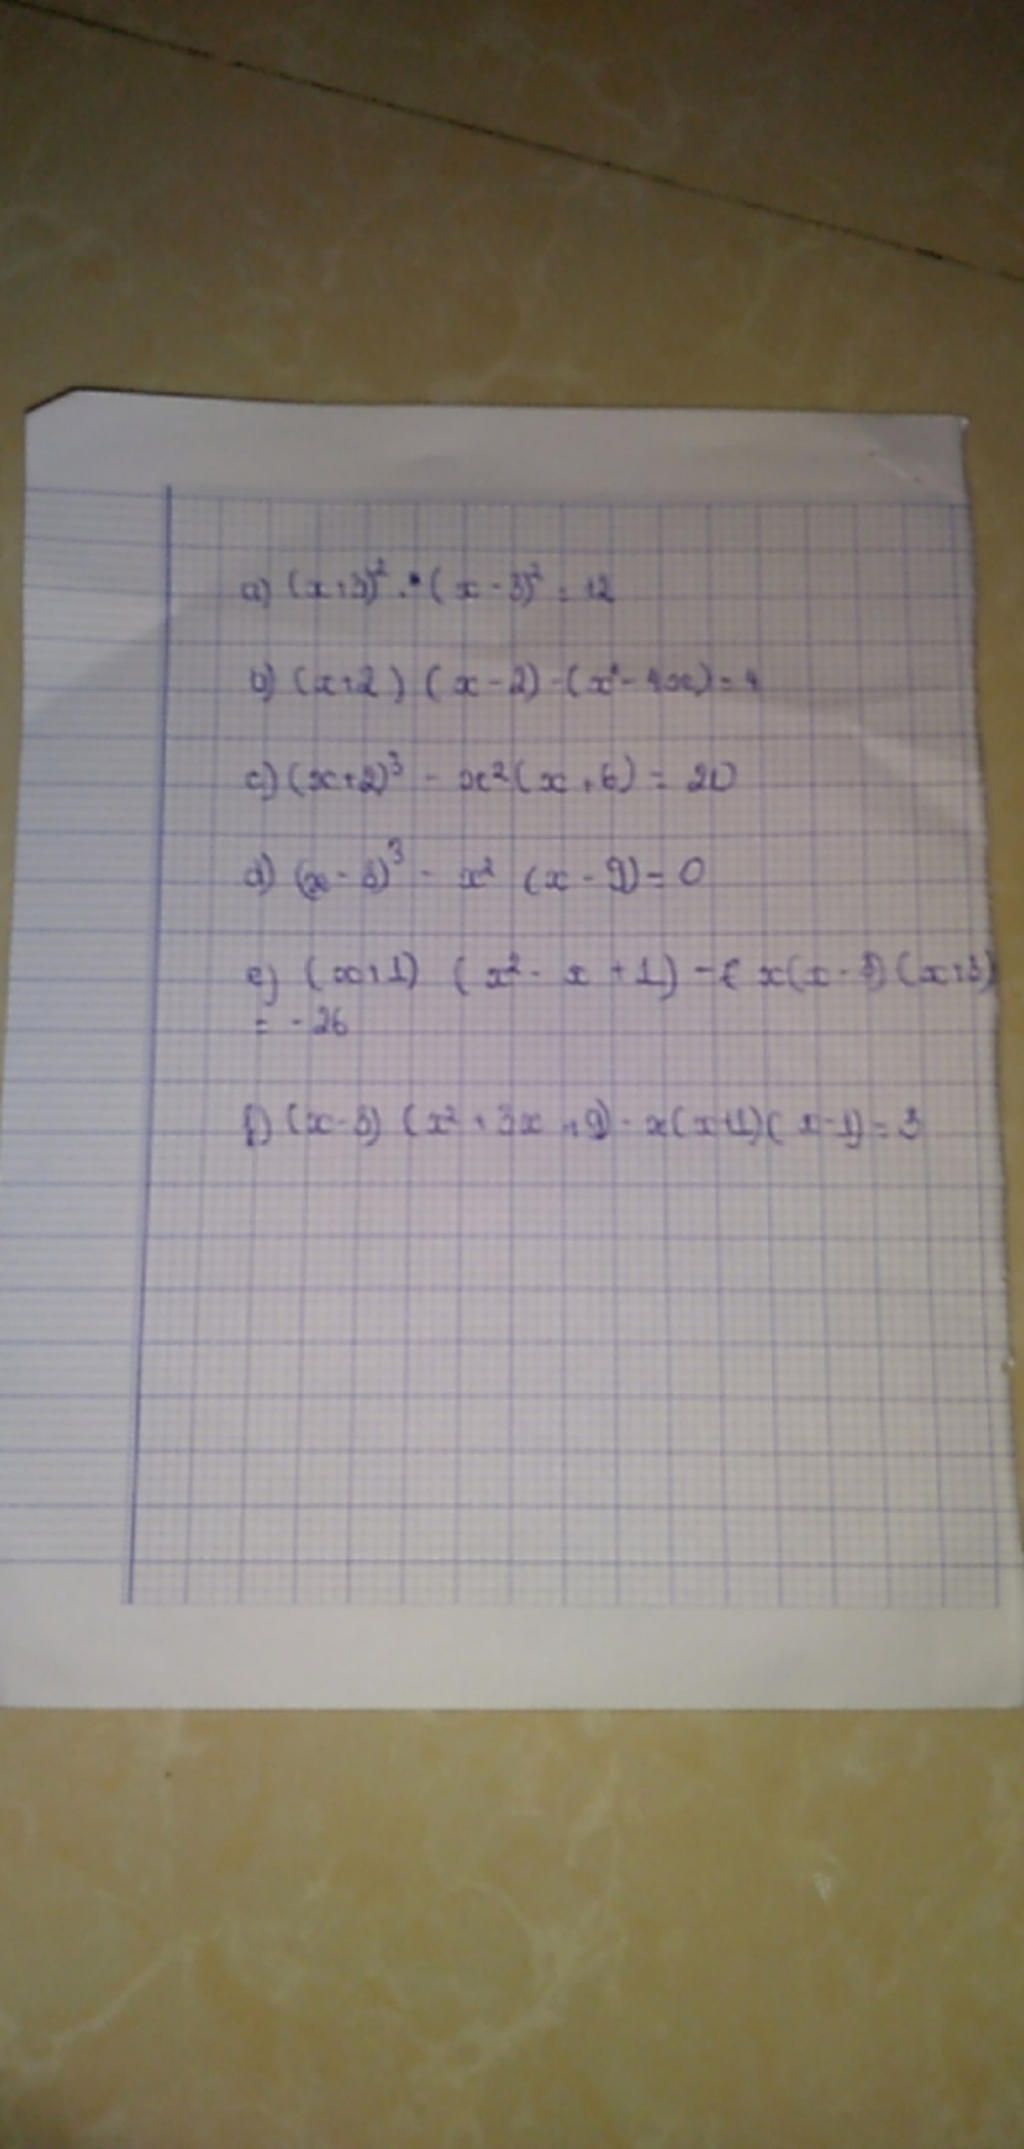 a) (x+3)² - (x-3)² = 12
b) (x+2) (x-2) - (x² - 4x) = 4
c) (x+2)³ - x² (x+6) = 20
d) (x-3)³ - x² (x-9) = 0
e) (x+1) (x² - x + 1) - x(x-3) (x+3)
= -26
f) (x-3) (x² + 3x + 9) - x(x+1)(x-1) = 3